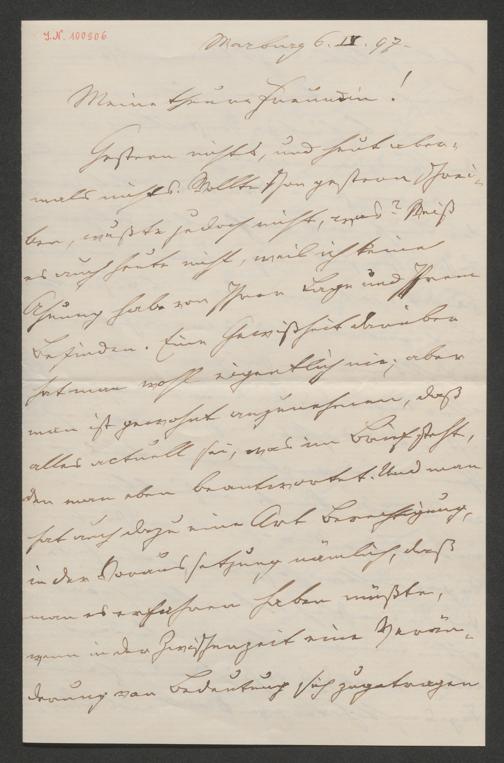 I.N. 100506
Marburg 6. IV. 97.
Meine theure Freundin!
Gestern nichts, und heut aber-
mals nichts. Wollte schon gestern schrei-
ben, wußte jedoch nicht, was? Weiß
es auch heute nicht, weil ich keine
Ahnung habe von Ihrer Lage und Ihrem
Befinden. Eine Gewißheit darüber
hat man wohl eigentlich nie; aber
man ist gewohnt anzunehmen, daß
alles actuell sei, was im Brief steht,
den man eben beantwortet. Und man
hat auch dazu eine Art Berechtigung,
in der Voraussetzung nämlich, daß
man es erfahren haben müßte,
wenn in der Zwischenzeit eine Verän-
derung von Bedeutung sich zugetragen